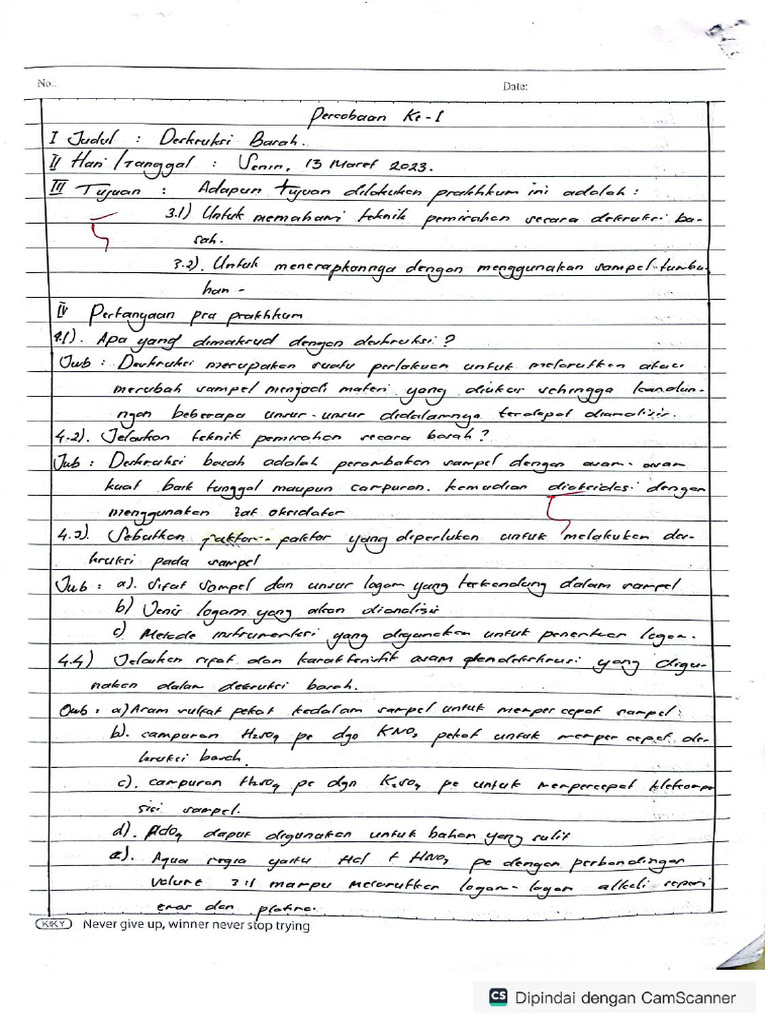 No.:
Date:
Percobaan Ke-I
I Judul : Destruksi Basah.
II Hari/Tanggal : Senin, 13 Maret 2023.
III Tujuan : Adapun tujuan dilakukan praktikum ini adalah :
3.1) Untuk memahami teknik pemisahan secara destruksi ba-
sah.
3.2). Untuk menerapkannya dengan menggunakan sampel tumbu
han -
IV Pertanyaan pra praktikum
4.1). Apa yang dimaksud dengan destruksi ?
Jwb : Destruksi merupakan suatu perlakuan untuk melarutkan atau
merubah sampel menjadi materi yang diukur sehingga kandu-
ngan beberapa unsur-unsur didalamnya terdapat dianalisis.
4.2). Jelaskan teknik pemisahan secara basah ?
Jwb : Destruksi basah adalah perombakan sampel dengan asam-asam
kuat baik tunggal maupun campuran. kemudian dioksidasi dengan
menggunakan zat oksidator
4.3). Sebutkan faktor-faktor yang diperlukan untuk melakukan des-
truksi pada sampel
Jwb : a). Sifat sampel dan unsur logam yang terkandung dalam sampel
b) Jenis logam yang akan dianalisis
c) Metode instrumentasi yang digunakan untuk penentuan logam.
4.4) Jelaskan sifat dan karakteristik asam yang digu-
nakan dalam destruksi basah.
Jwb : a) Asam sulfat pekat kedalam sampel untuk mempercepat sampel.
b). campuran H2SO4 pe dgn KNO3 pekat untuk mempercepat des-
truksi basah.
c). campuran H2SO4 pe dgn K2SO4 pe untuk mempercepat
sisi sampel.
d). dapat digunakan untuk bahan yang sulit
e). Aqua regia yaitu HCl + HNO3 pe dengan perbandingan
volume 3:1 mampu melarutkan logam-logam seperti
emas dan platina.
KIKY Never give up, winner never stop trying
CS Dipindai dengan CamScanner